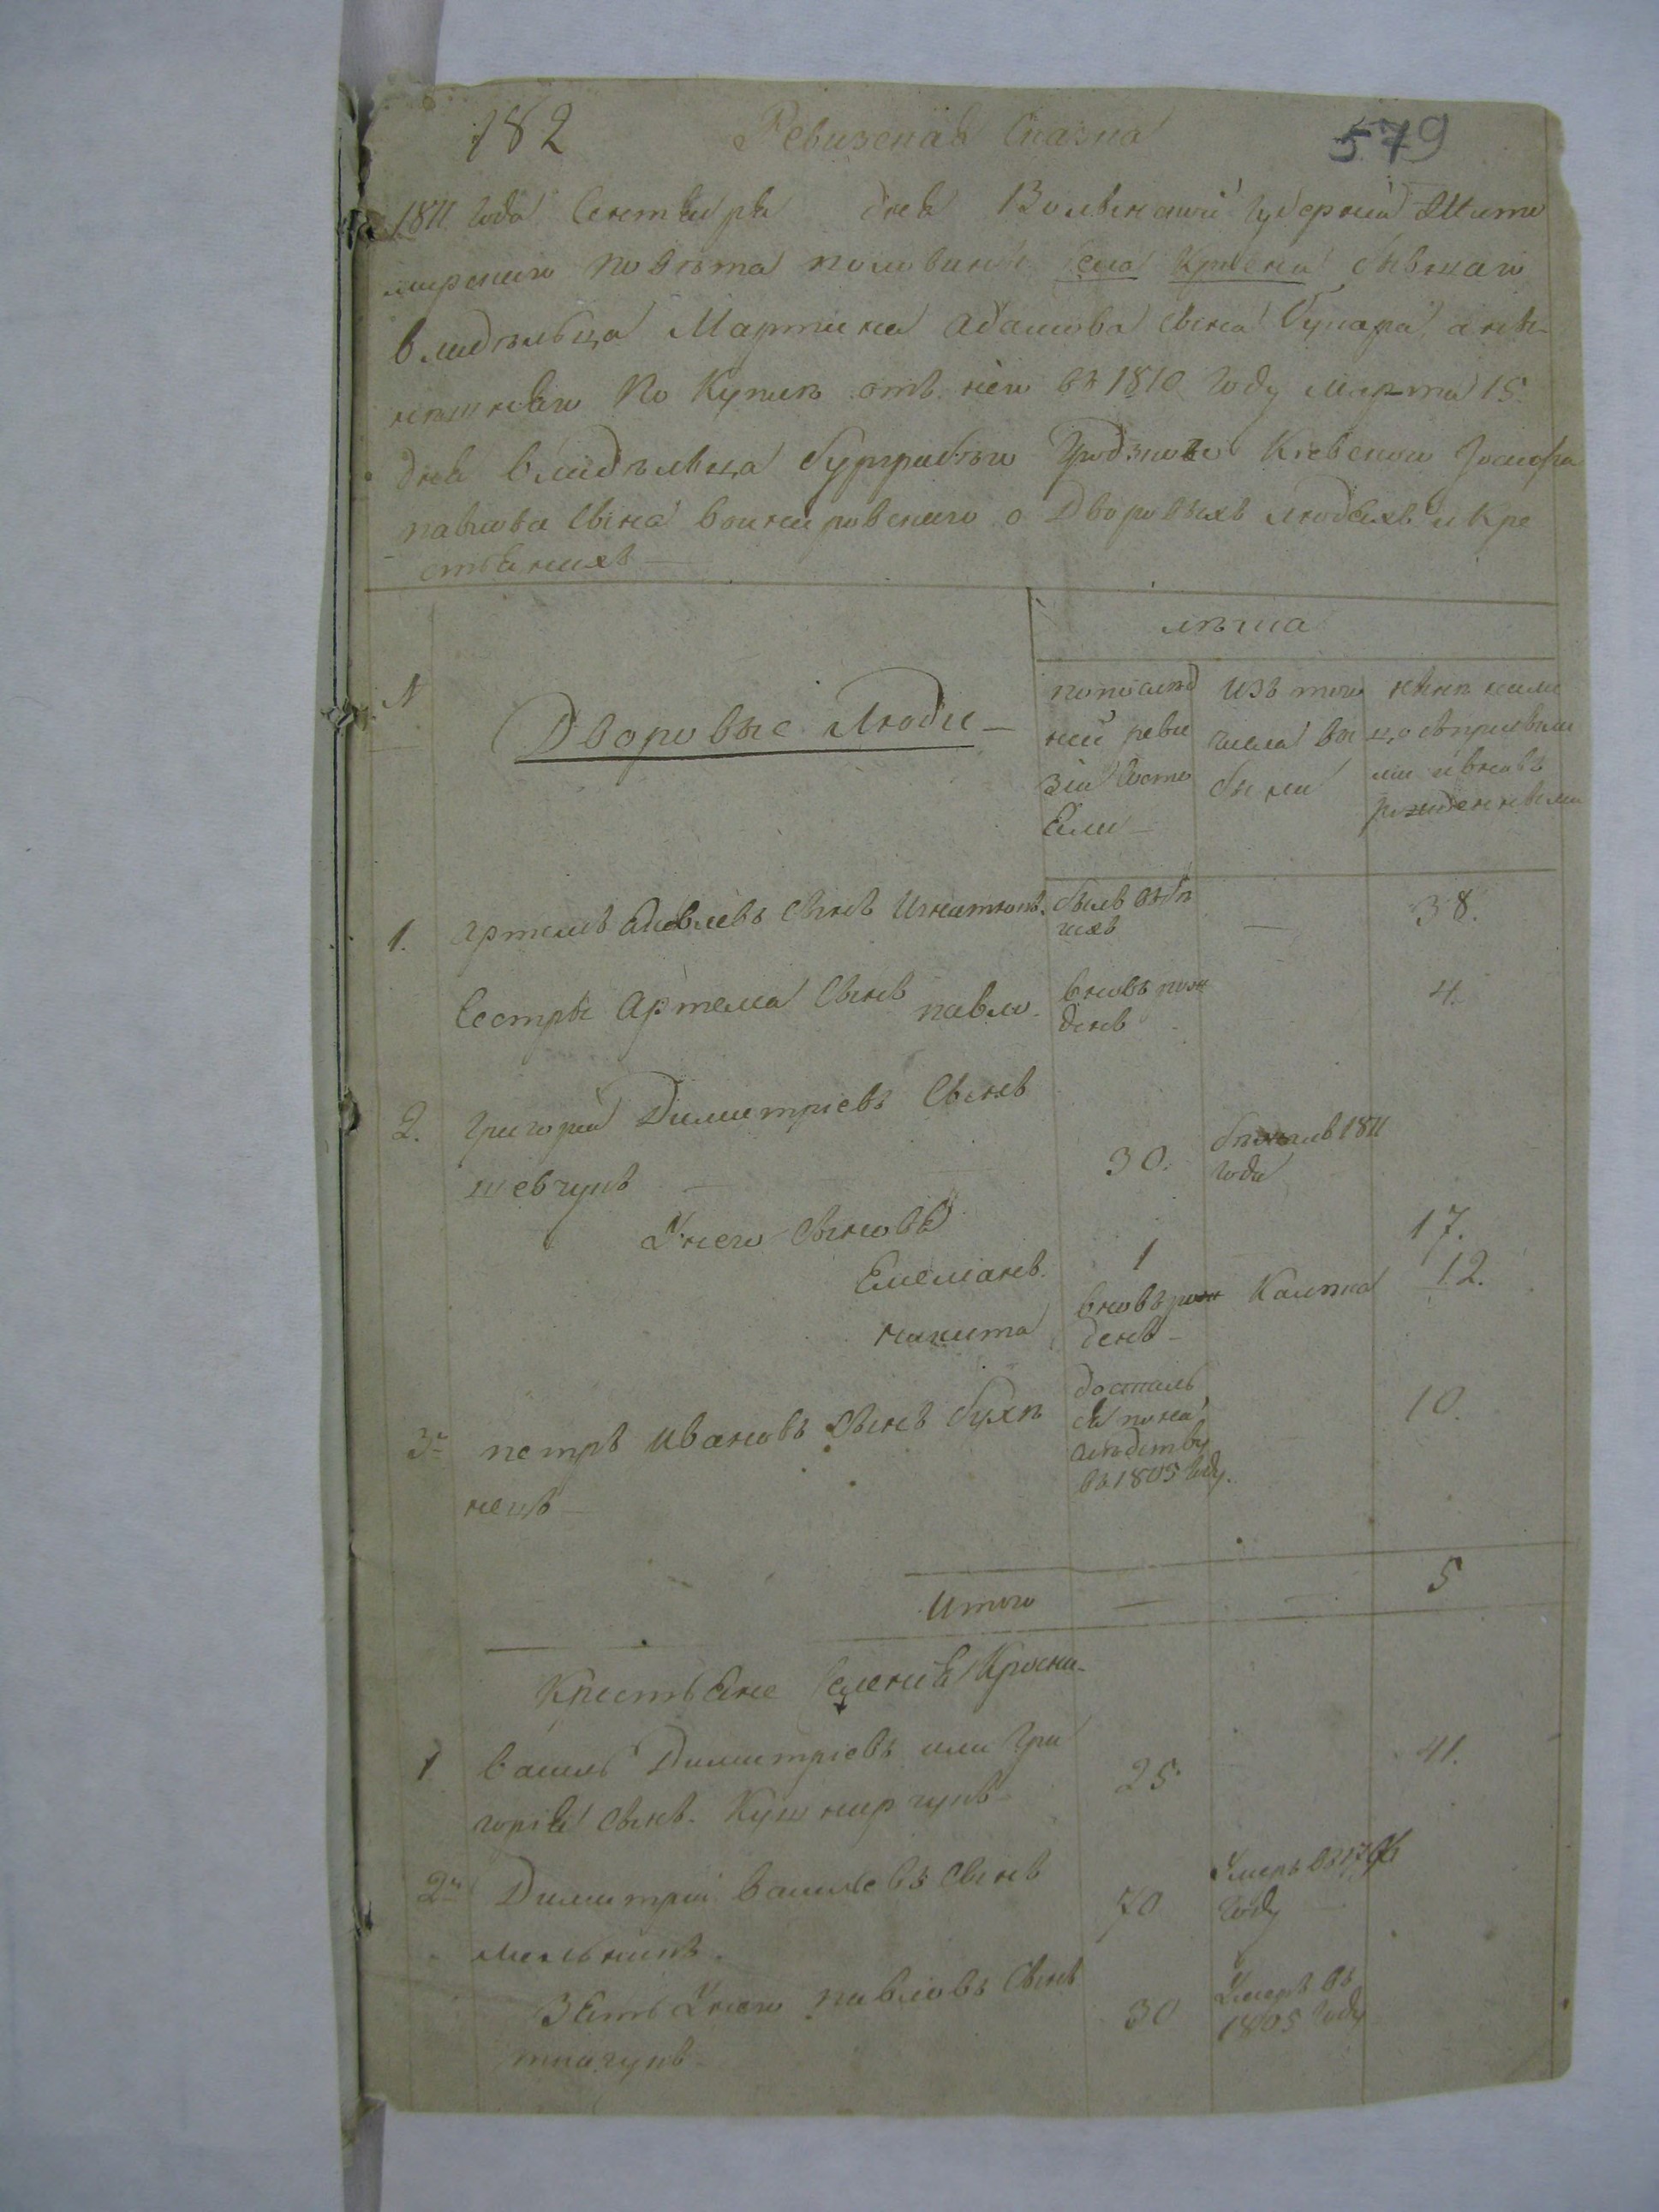 182 Ревизская Сказка 579
1811 года Сентября дня Волынской губернии Жито
мирского повѣта половины села Кросни бывшаго
владѣльца Мартина Адамова сына а ны-
нѣшняго По Купли отъ него въ 1810 году марта 15
дня владѣльца бургграбѣго Гродзкого Киевского Іосифа
павлова сына о Дворовыхъ людяхъ и Кре
стьянахъ
лѣта
N
Дворовые Люди
по послѣд
ней реви
зіи состо
яли
изъ того
числа вы
были
нынѣ на ли
цо съ прибылы
ми и вновь
рожденными
1. Артемъ Яковлевъ сынъ былъ въ бѣ
гахъ — 38.
Сестры Артема Сынъ павло вновь рож
денъ 4.
2. Григорей Димитріевъ Сынъ
шевчукъ 30. 1811
года
У него Сыновья
Емеліанъ 1 17.
никита вновь рож
денъ 12.
3. петръ Ивановъ Сынъ бухн
нецъ досталь
ся по на
слѣдству
въ 1805 году. 10.
Итого — — 5
Крестьяне селенія Кросни
1 василь Димитріевъ или Гри
горія сынъ Кушнирчукъ 25 41.
2й Димитрій васильевъ сынъ
мельникъ 70 Умеръ въ
году
Зять У него павловъ Сынъ
ткачукъ 30 Умеръ въ
1805 году